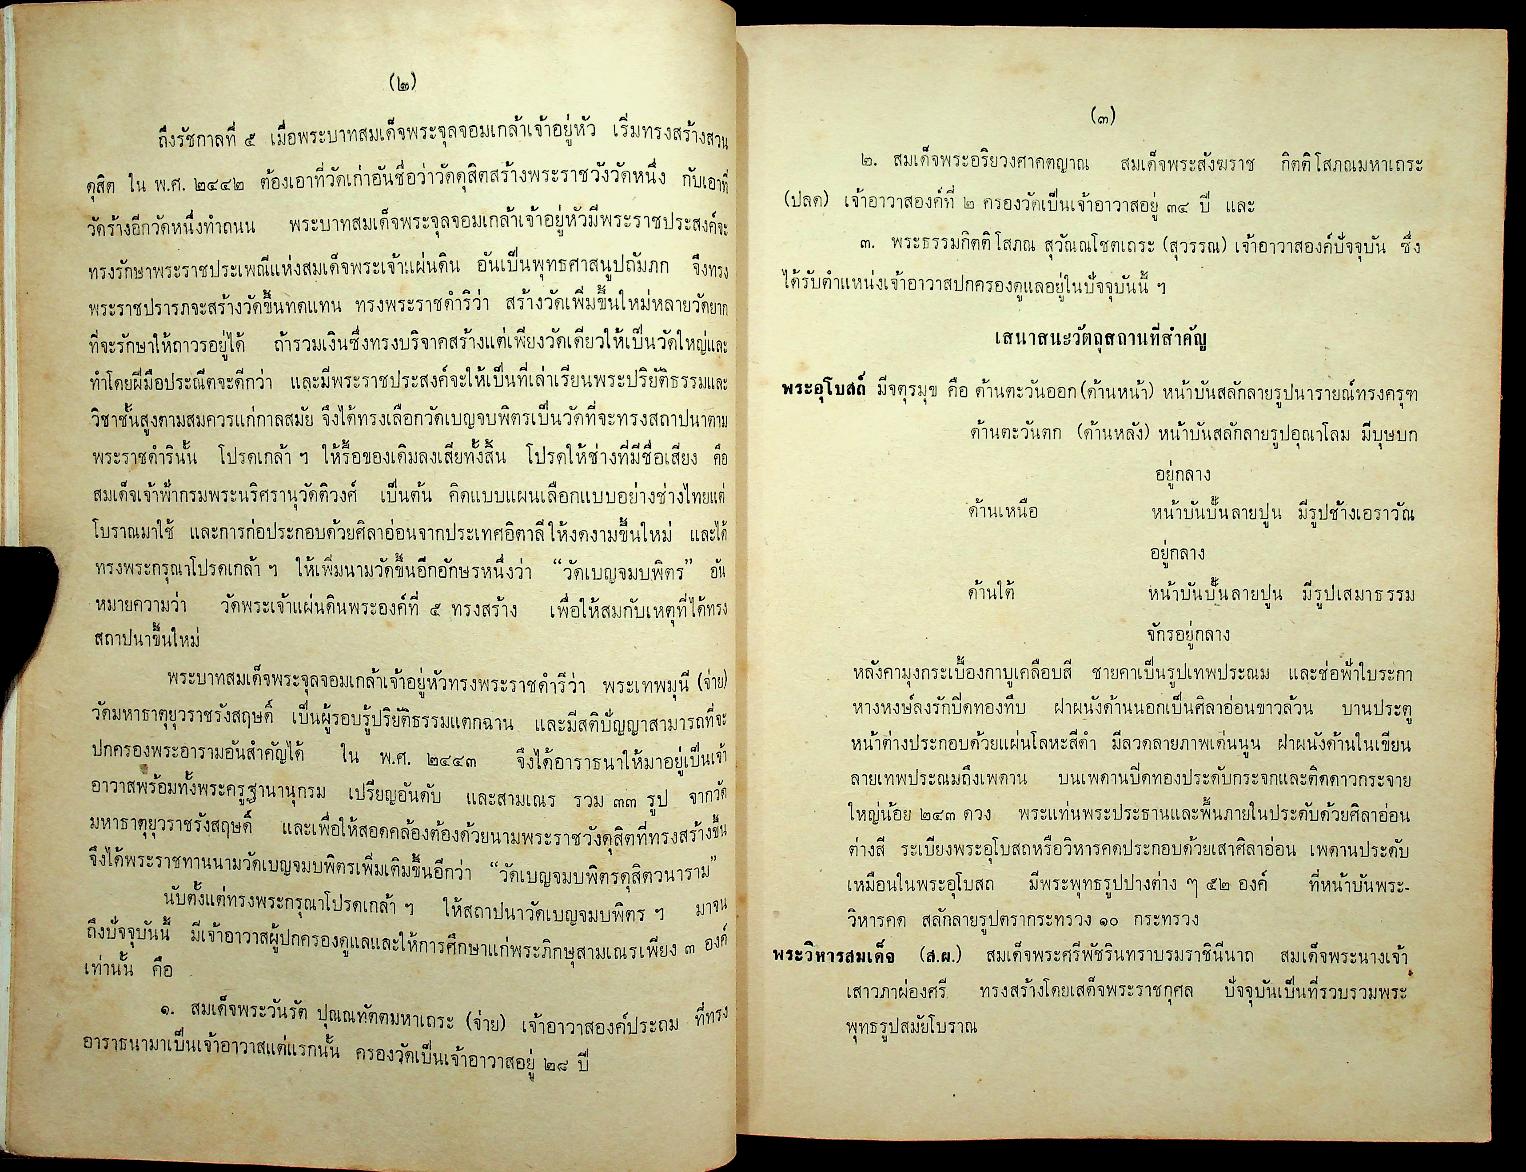 (๒)
ถึงรัชกาลที่ ๕ เมื่อพระบาทสมเด็จพระจุลจอมเกล้าเจ้าอยู่หัว เริ่มทรงสร้างสวน
ดุสิต ใน พ.ศ. ๒๔๔๒ ต้องเอาที่วัดเก่าอันชื่อว่าวัดดุสิตสร้างพระราชวังวัดหนึ่ง กับเอาที่
วัดร้างอีกวัดหนึ่งทำถนน พระบาทสมเด็จพระจุลจอมเกล้าเจ้าอยู่หัวมีพระราชประสงค์จะ
ทรงรักษาพระราชประเพณีแห่งสมเด็จพระเจ้าแผ่นดิน อันเป็นพุทธศาสนูปถัมภก จึงทรง
พระราชปรารภจะสร้างวัดขึ้นทดแทน ทรงพระราชดำริว่า สร้างวัดเพิ่มขึ้นใหม่หลายวัดยาก
ที่จะรักษาให้ถาวรอยู่ได้ ถ้ารวมเงินซึ่งทรงบริจาคสร้างแต่เพียงวัดเดียวให้เป็นวัดใหญ่และ
ทำโดยฝีมือประณีตจะดีกว่า และมีพระราชประสงค์จะให้เป็นที่เล่าเรียนพระปริยัติธรรมและ
วิชาชั้นสูงตามสมควรแก่กาลสมัย จึงได้ทรงเลือกวัดเบญจบพิตรเป็นวัดที่จะทรงสถาปนาตาม
พระราชดำรินั้น โปรดเกล้า ฯ ให้รื้อของเดิมลงเสียทั้งสิ้น โปรดให้ช่างที่มีชื่อเสียง คือ
สมเด็จเจ้าฟ้ากรมพระนริศรานุวัดติวงศ์ เป็นต้น คิดแบบแผนเลือกแบบอย่างช่างไทยแต่
โบราณมาใช้ และการก่อประกอบด้วยศิลาอ่อนจากประเทศอิตาลีให้งดงามขึ้นใหม่ และได้
ทรงพระกรุณาโปรดเกล้า ฯ ให้เพิ่มนามวัดขึ้นอีกอักษรหนึ่งว่า “วัดเบญจมบพิตร” อัน
หมายความว่า วัดพระเจ้าแผ่นดินพระองค์ที่ ๕ ทรงสร้าง เพื่อให้สมกับเหตุที่ได้ทรง
สถาปนาขึ้นใหม่
พระบาทสมเด็จพระจุลจอมเกล้าเจ้าอยู่หัวทรงพระราชดำริว่า พระเทพมุนี (จ่าย)
วัดมหาธาตุยุวราชรังสฤษดิ์ เป็นผู้รอบรู้ปริยัติธรรมแตกฉาน และมีสติปัญญาสามารถที่จะ
ปกครองพระอารามอันสำคัญได้ ใน พ.ศ. ๒๔๔๓ จึงได้อาราธนาให้มาอยู่เป็นเจ้า
อาวาสพร้อมทั้งพระครูฐานานุกรม เปรียญอันดับ และสามเณร รวม ๓๓ รูป จากวัด
มหาธาตุยุวราชรังสฤษดิ์ และเพื่อให้สอดคล้องต้องด้วยนามพระราชวังดุสิตที่ทรงสร้างขึ้น
จึงได้พระราชทานนามวัดเบญจมบพิตรเพิ่มเติมขึ้นอีกว่า “วัดเบญจมบพิตรดุสิตวนาราม”
นับตั้งแต่ทรงพระกรุณาโปรดเกล้า ฯ ให้สถาปนาวัดเบญจมบพิตร ฯ มาจน
ถึงปัจจุบันนี้ มีเจ้าอาวาสผู้ปกครองดูแลและให้การศึกษาแก่พระภิกษุสามเณรเพียง ๓ องค์
เท่านั้น คือ
๑. สมเด็จพระวันรัต ปุณณทัตตมหาเถระ (จ่าย) เจ้าอาวาสองค์ประถม ที่ทรง
อาราธนามาเป็นเจ้าอาวาสแต่แรกนั้น ครองวัดเป็นเจ้าอาวาสอยู่ ๒๘ ปี
(๓)
๒. สมเด็จพระอริยวงศาคตญาณ สมเด็จพระสังฆราช กิตติโสภณมหาเถระ
(ปลด) เจ้าอาวาสองค์ที่ ๒ ครองวัดเป็นเจ้าอาวาสอยู่ ๓๔ ปี และ
๓. พระธรรมกิตติโสภณ สุวัณณโชตเถระ (สุวรรณ) เจ้าอาวาสองค์ปัจจุบัน ซึ่ง
ได้รับตำแหน่งเจ้าอาวาสปกครองดูแลอยู่ในปัจจุบันนี้ ฯ
เสนาสนะวัตถุสถานที่สำคัญ
พระอุโบสถ มีจตุรมุข คือ ด้านตะวันออก (ด้านหน้า) หน้าบันสลักลายรูปนารายณ์ทรงครุฑ
ด้านตะวันตก (ด้านหลัง) หน้าบันสลักลายรูปอุณาโลม มีบุษบก
อยู่กลาง
ด้านเหนือ หน้าบันปั้นลายปูน มีรูปช้างเอราวัณ
อยู่กลาง
ด้านใต้ หน้าบันปั้นลายปูน มีรูปเสมาธรรม
จักรอยู่กลาง
หลังคามุงกระเบื้องกาบูเคลือบสี ชายคาเป็นรูปเทพประณม และช่อฟ้าใบระกา
หางหงษ์ลงรักปิดทองทึบ ฝาผนังด้านนอกเป็นศิลาอ่อนขาวล้วน บานประตู
หน้าต่างประกอบด้วยแผ่นโลหะสีดำ มีลวดลายภาพเด่นนูน ฝาผนังด้านในเขียน
ลายเทพประณมถึงเพดาน บนเพดานปิดทองประดับกระจกและติดดาวกระจาย
ใหญ่น้อย ๒๔๓ ดวง พระแท่นพระประธานและพื้นภายในประดับด้วยศิลาอ่อน
ต่างสี ระเบียงพระอุโบสถหรือวิหารคดประกอบด้วยเสาศิลาอ่อน เพดานประดับ
เหมือนในพระอุโบสถ มีพระพุทธรูปปางต่าง ๆ ๕๒ องค์ ที่หน้าบันพระ-
วิหารคด สลักลายรูปตรากระทรวง ๑๐ กระทรวง
พระวิหารสมเด็จ (ส.ผ.) สมเด็จพระศรีพัชรินทราบรมราชินีนาถ สมเด็จพระนางเจ้า
เสาวภาผ่องศรี ทรงสร้างโดยเสด็จพระราชกุศล ปัจจุบันเป็นที่รวบรวมพระ
พุทธรูปสมัยโบราณ